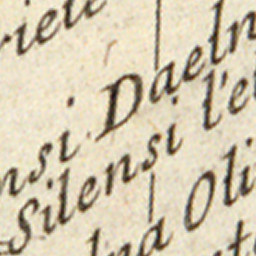 riete
nsi Daeln
Silensi l'e
lna Oli